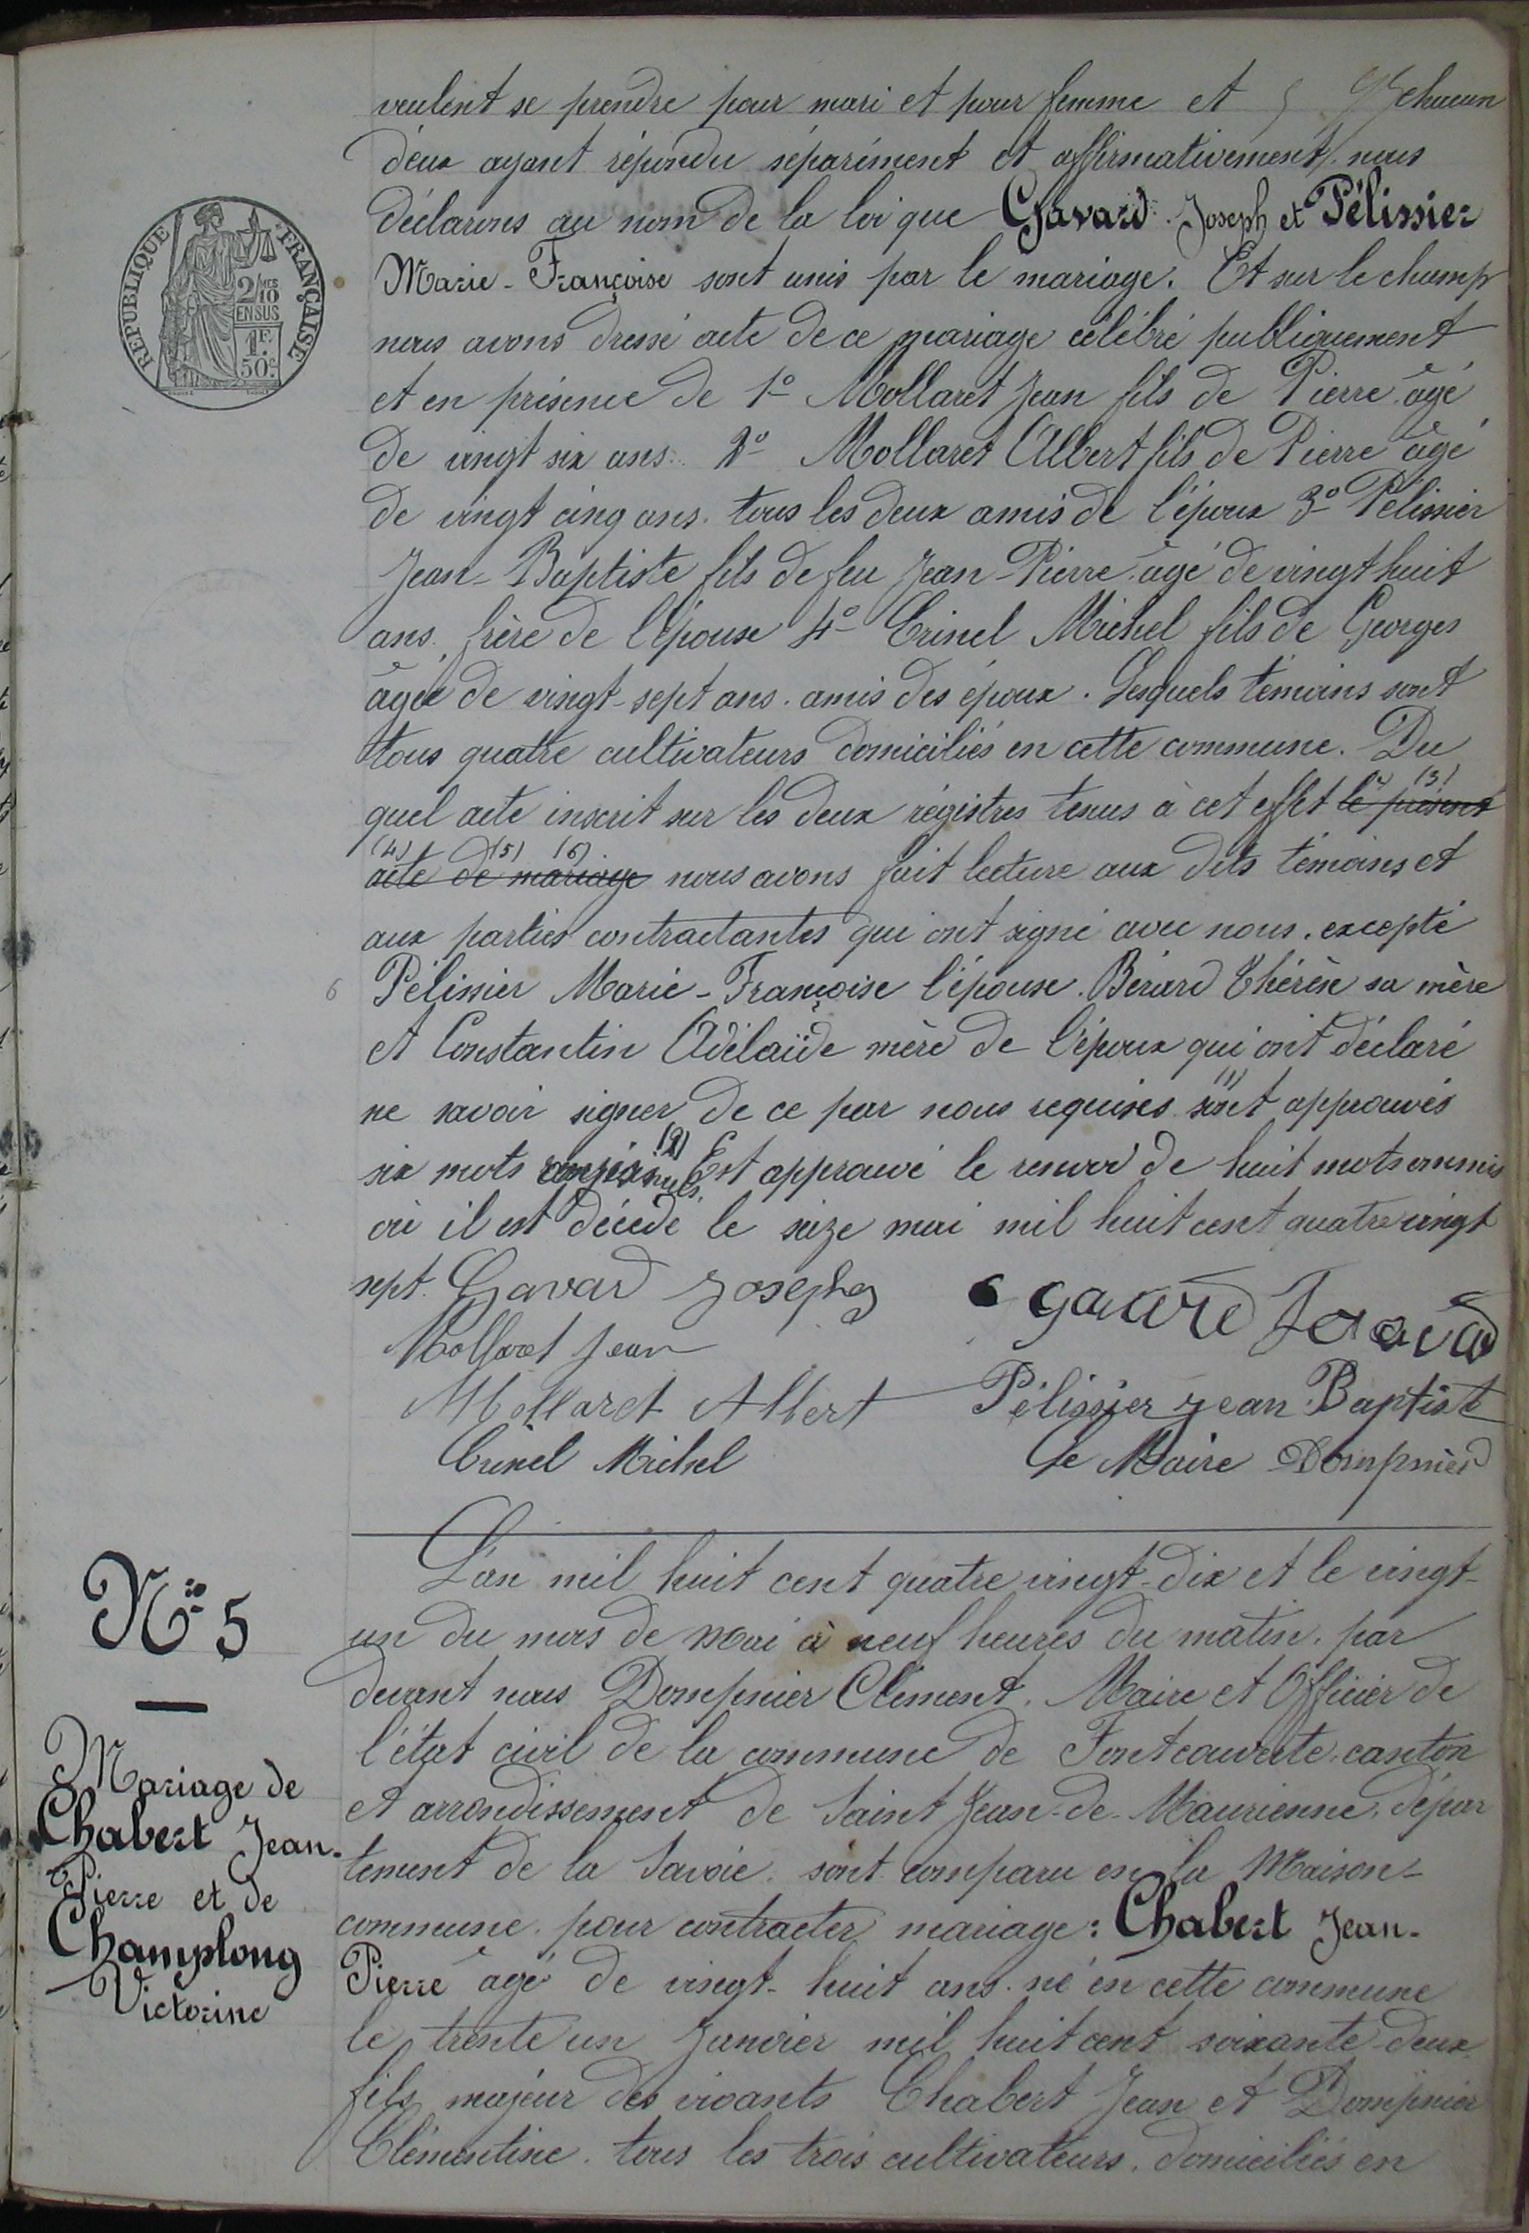 veulent se prendre pour mari et pour femme et chacun
deux ayant répondu séparément et affirmativement, nous
déclarons au nom de la loi que Gavard Joseph et Pélissier
Marie-Françoise sont unis par le mariage. Et sur le champ
nous avons dressé acte de ce mariage célébré publiquement
et en présence de 1º Mollaret Jean fils de Pierre âgé
de vingt six ans. 2º Mollaret Albert fils de Pierre âgé
de vingt cinq ans. tous les deux amis de l'époux 3º Pélissier
Jean-Baptiste fils de feu Jean-Pierre âgé de vingt huit
ans. frère de l'épouse 4º Crinel Michel fils de Georges
âgé de vingt-sept ans. amis des époux. Lesquels témoins sont
tous quatre cultivateurs domiciliés en cette commune. Du
quel acte inscrit sur les deux régistres tenus à cet effet le présent (3)
(4) (5) (6)
acte de mariage nous avons fait lecture aux dits témoins et
aux parties contractantes qui ont signé avec nous. excepté
6 Pélissier Marie-Françoise l'épouse. Bérard Thérèse sa mère
et Constantin Adélaïde mère de l'époux qui ont déclaré
ne savoir signer de ce par nous requises (1) sont approuvés
six mots nuls. (2) Est approuvé le renvoi de huit mots ommis
où il est décédé le seize mai mil huit cent quatre vingt
sept. Gavard Joseph
Mollaret Jean
Mollaret Albert Pélissier Jean Baptist
Crinel Michel Le Maire Dompnier
RÉPUBLIQUE FRANÇAISE
2/10MES
EN SUS
1F.
50C.
Nº 5
Mariage de
Chabert Jean-
Pierre et de
Champlong
Victorine
L'an mil huit cent quatre vingt-dix et le vingt-
un du mois de Mai à neuf heures du matin. par
devant nous Dompnier Clément. Maire et Officier de
l'état civil de la commune de Fontcouverte, canton
et arrondissement de Saint Jean-de-Maurienne, dépar
tement de la Savoie. sont comparu en la Maison-
commune. pour contracter mariage: Chabert Jean-
Pierre âgé de vingt-huit ans. né en cette commune
le trente un Janvier mil huit cent soixante-deux
fils majeur des vivants Chabert Jean et Dompnier
Clémentine. tous les trois cultivateurs. domiciliés en